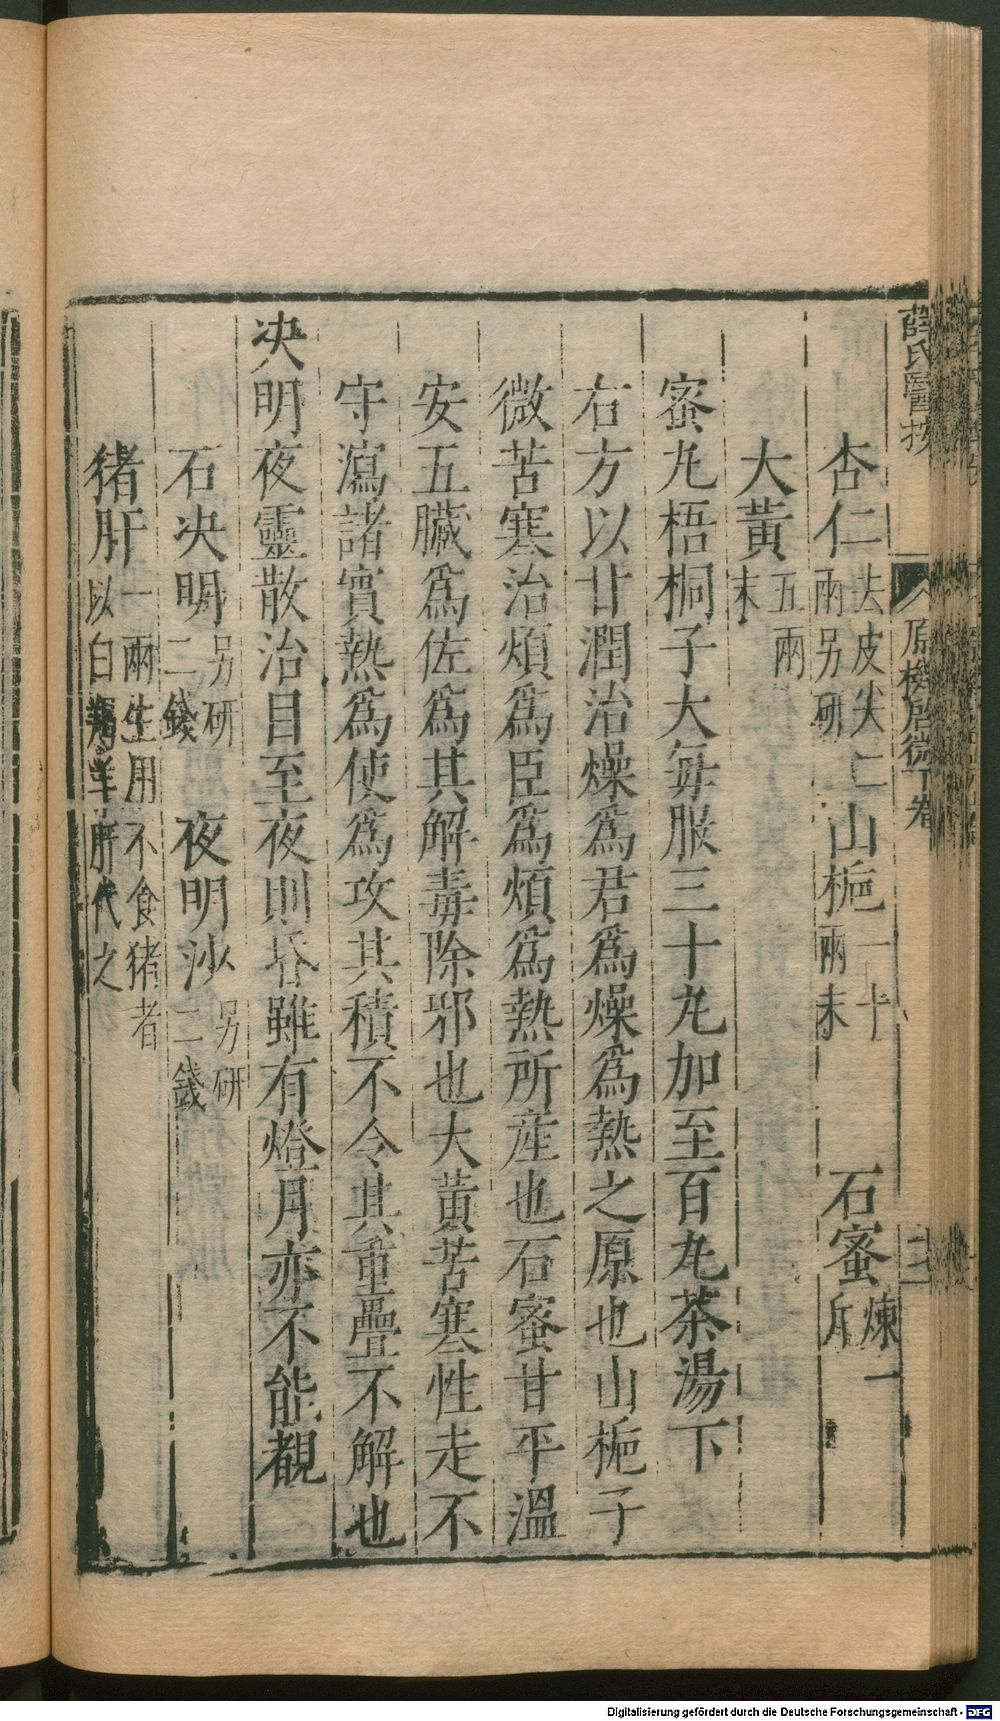 薛氏醫按 原機啟微下卷
杏仁去皮尖二兩另研 山梔一十兩末 石蜜煉一斤
大黃五兩末
蜜丸梧桐子大每服三十丸加至百丸茶湯下
右方以甘潤治燥爲君爲燥爲熱之原也山梔子
微苦寒治煩爲臣爲煩爲熱所産也石蜜甘平溫
安五臟爲佐爲其解毒除邪也大黃苦寒性走不
守瀉諸實熱爲使爲攻其積不令其重疊不解也
决明夜靈散治目至夜則昏雖有燈月亦不能覩
石决明另研二錢 夜明沙另研二錢
猪肝一兩生用不食猪者以白羯羊肝代之
Digitalisierung gefördert durch die Deutsche Forschungsgemeinschaft - DFG